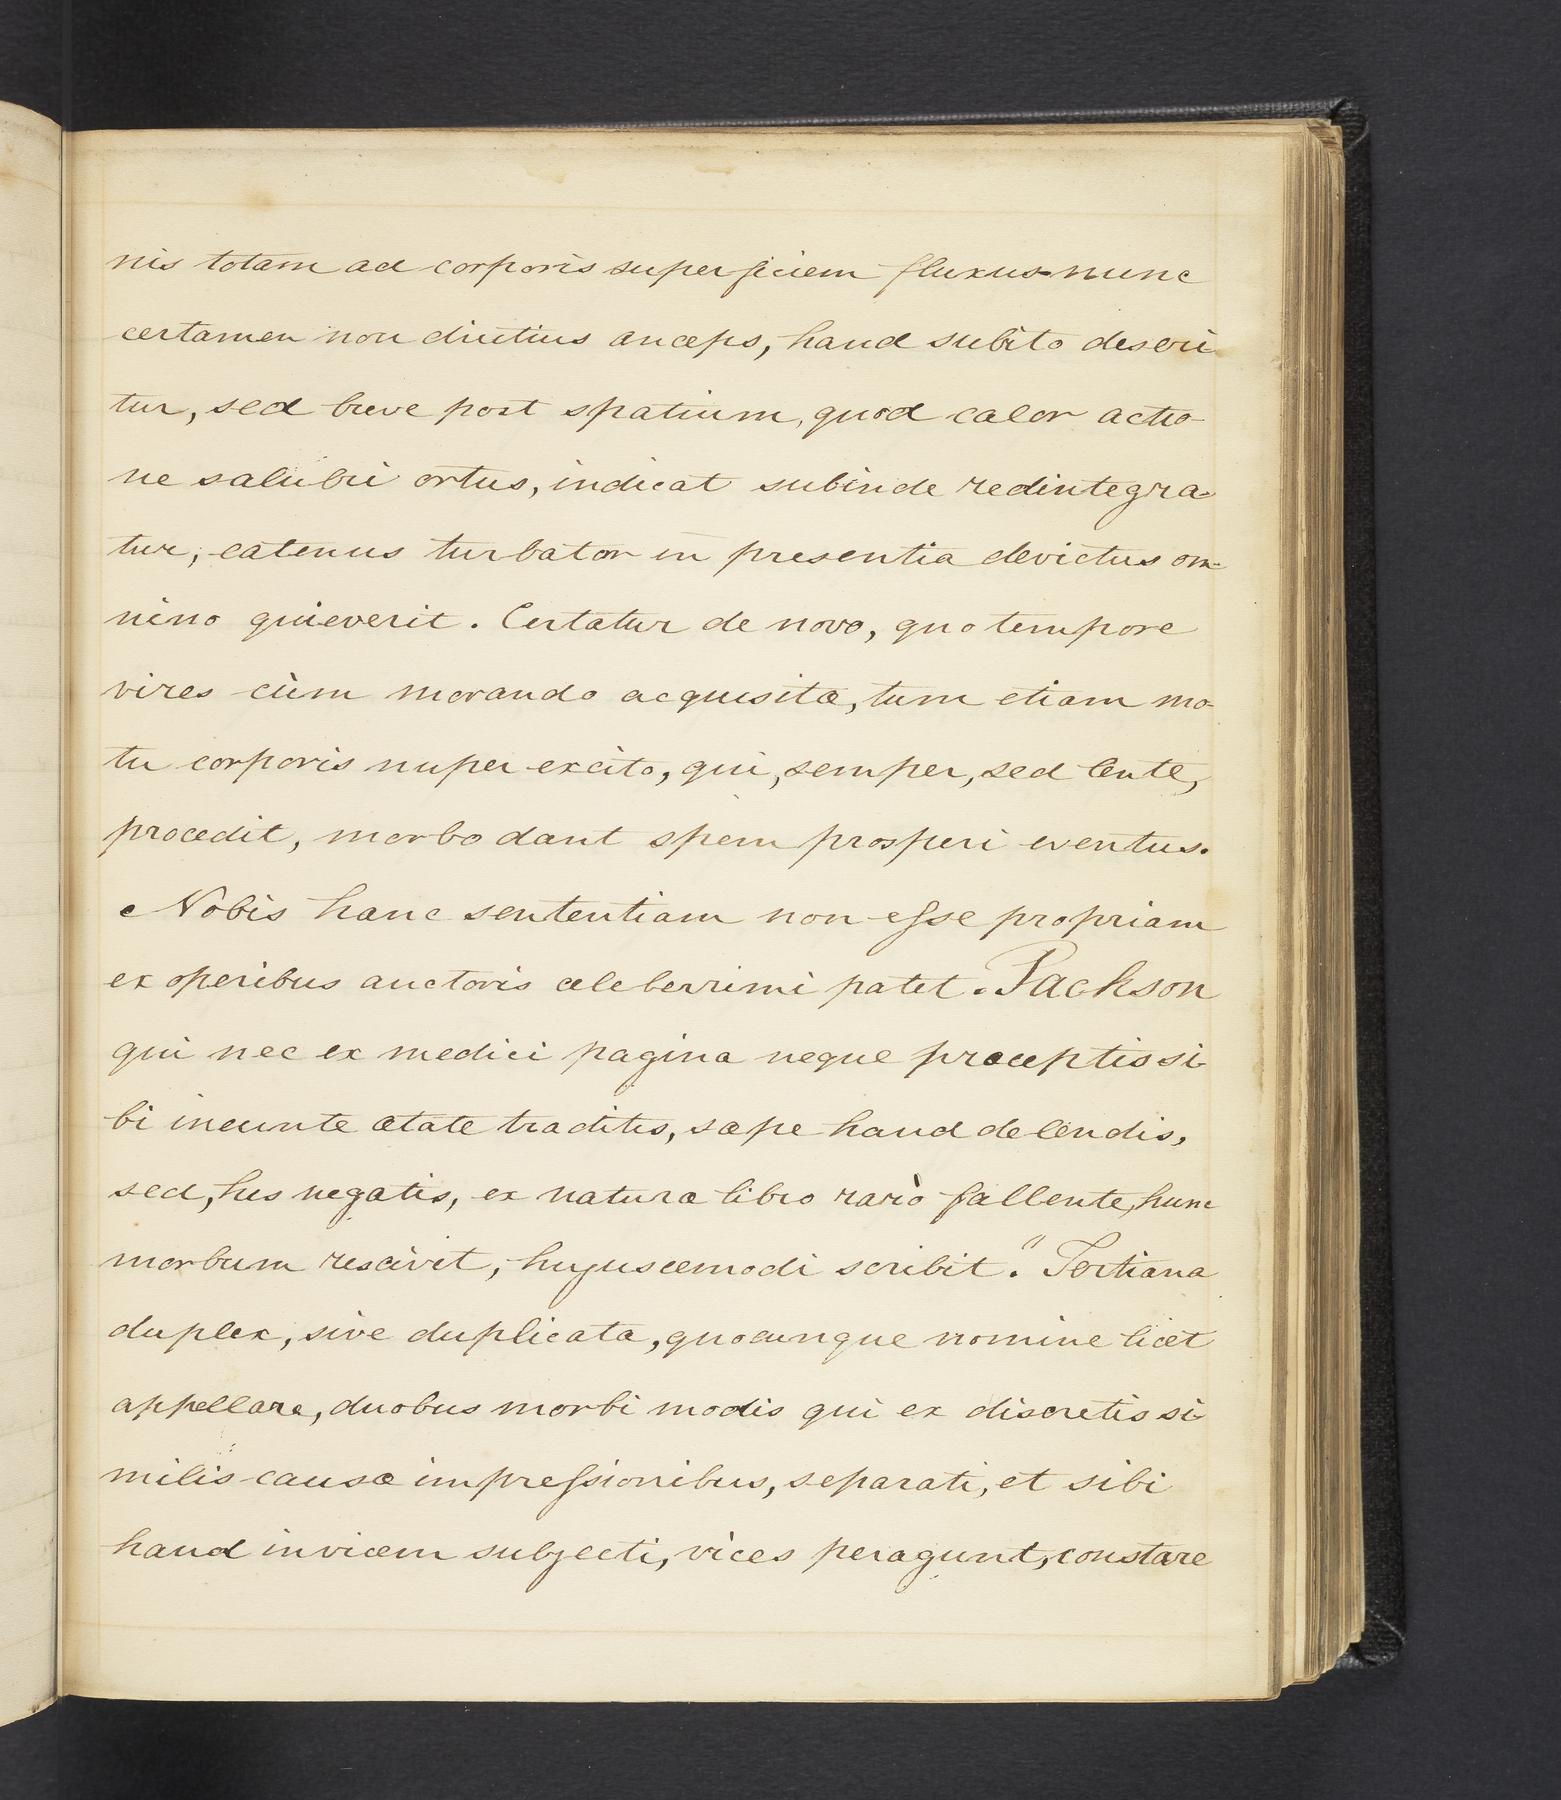 nis totam ad corporis superficiem fluxus nunc
certamen non diutius anceps, haud subito deseri
tur, sed breve post spatium, quod calor actio-
ne salubri ortus, indicat subinde redintegra-
tur, eatenus turbator in presentia devictus om-
nino quieverit. Certatur de novo, quo tempore
vires cùm morando acquisitæ, tum etiam mo-
tu corporis nuper excito, qui, semper, sed lente,
procedit, morbo dant spem prosperi eventus.
Nobis hanc sententiam non esse propriam
ex operibus auctoris celeberrimi patet. Jackson
qui nec ex medici pagina neque præceptis si-
bi ineunte ætate traditis, sæpe haud delendis,
sed, his negatis, ex naturæ libro rarò fallente, hunc
morbum rescivit, hujuscemodi scribit. "Tertiana
duplex, sive duplicata, quocunque nomine licet
appellare, duobus morbi modis qui ex discretis si-
milis causæ impressionibus, separati, et sibi
haud invicem subjecti, vices peragunt, constare